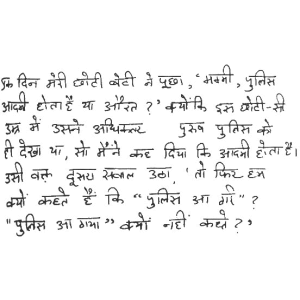 एक दिन मेरी छोटी बेटी ने पूछा, "मम्मी, पुलिस
आदमी होता है या औरत?" क्योंकि इस छोटी-सी
उम्र में उसने अधिकतर पुरुष पुलिस को
ही देखा था, सो मैंने कह दिया कि आदमी होता है।
उसी वक्त दूसरा सवाल उठा, 'तो फिर हम
क्यों कहते हैं कि "पुलिस आ गई"?
"पुलिस आ गया" क्यों नहीं कहते?'